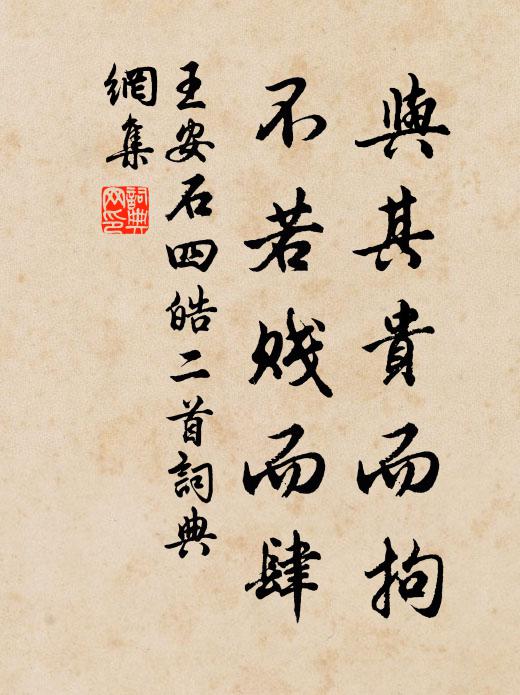 與其貴而拘
不若賤而肆
王安石四皓二首詞典
網集
詞典網印